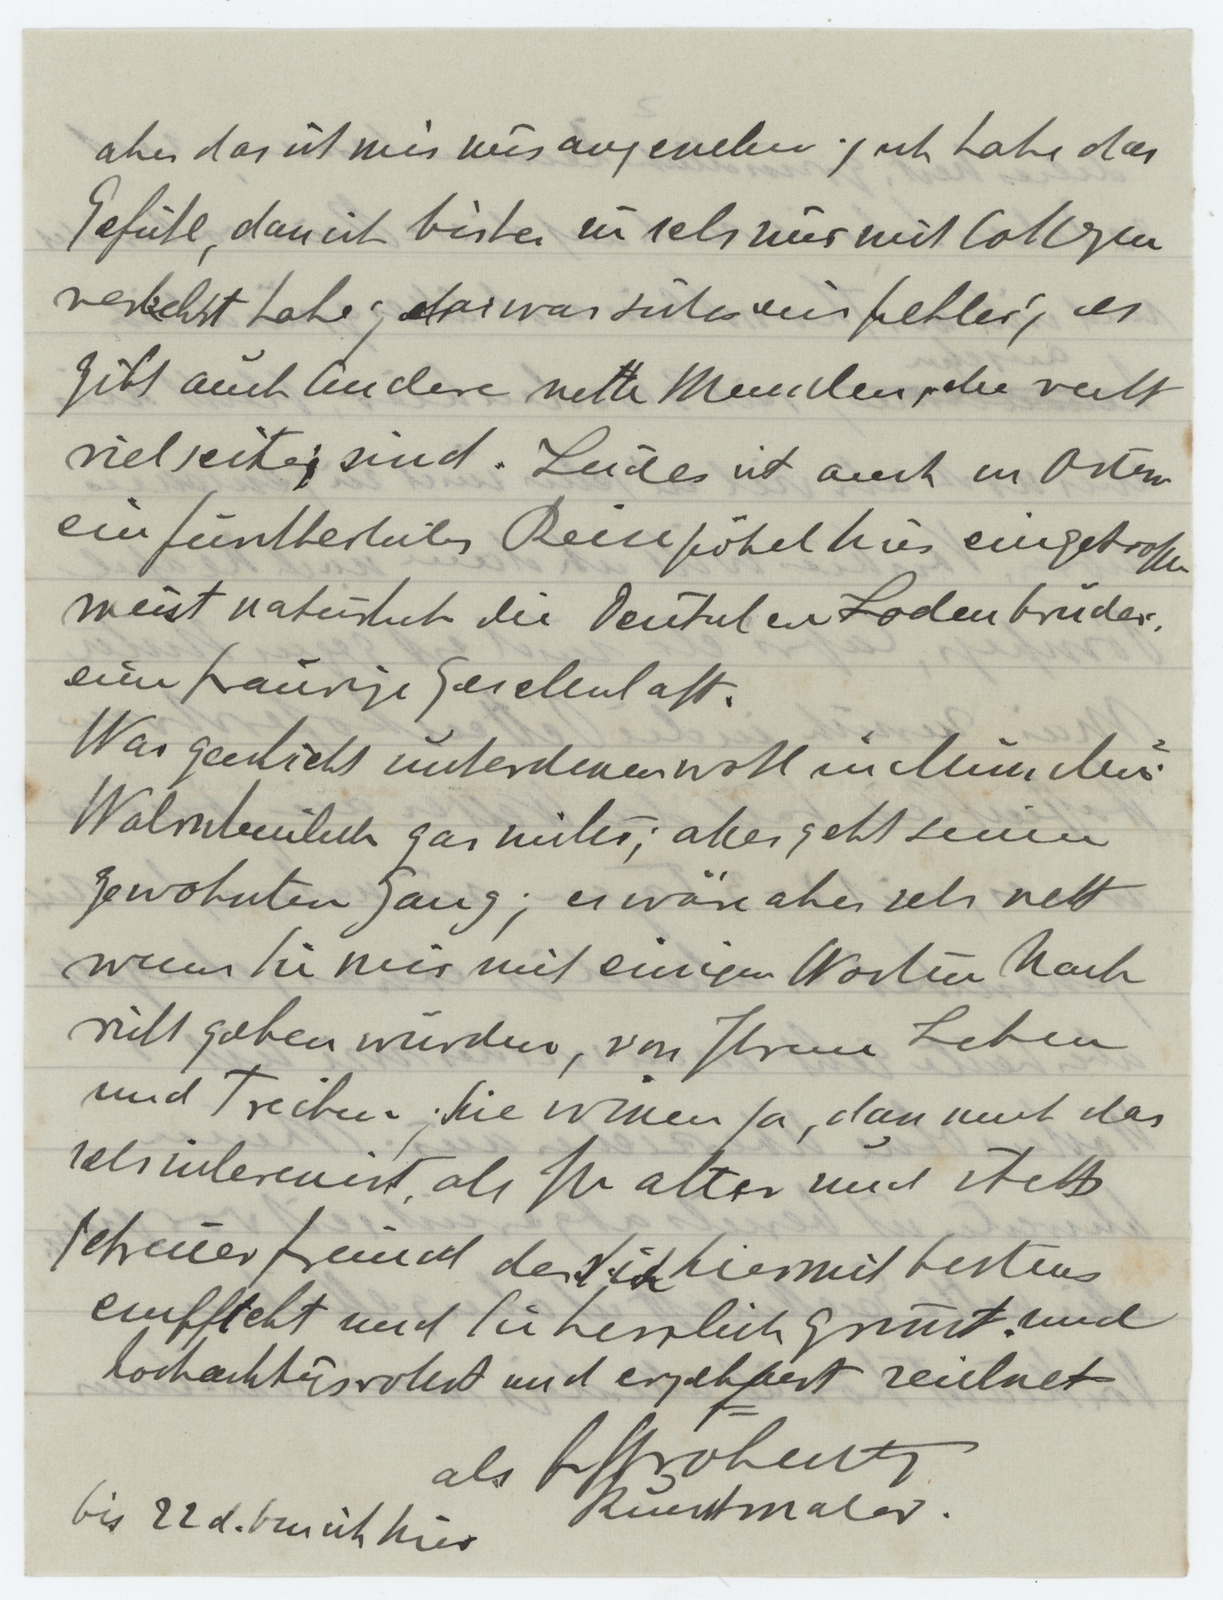 aber das ist mir nur angenehm; ich habe das
Gefühl, dass ich bisher zu sehr nur mit Collegen
verkehrt habe; das war sicher ein Fehler; es
gibt auch andere nette Menschen, die recht
vielseitig sind. Leider ist auch zu Ostern
ein fürchterlicher Reisepöbel hier eingetroffen
meist natürlich die Deutschen Lodenbrüder,
eine traurige Gesellschaft.
Was geschieht unterdessen wohl in München?
Wahrscheinlich gar nichts; alles geht seinen
gewohnten Gang; es wäre aber sehr nett
wenn Sie mir mit einigen Worten Nach
richt geben würden, von Ihrem Leben
und Treiben; Sie wissen ja, dass mich das
sehr interessirt, als Ihr alter und stets
treuer Freund der sich hiermit bestens
empfiehlt und Sie herzlich grüsst und
hochachtungsvollst und ergebenst zeichnet
als
Kunstmaler.
bis 22 d. bin ich hier